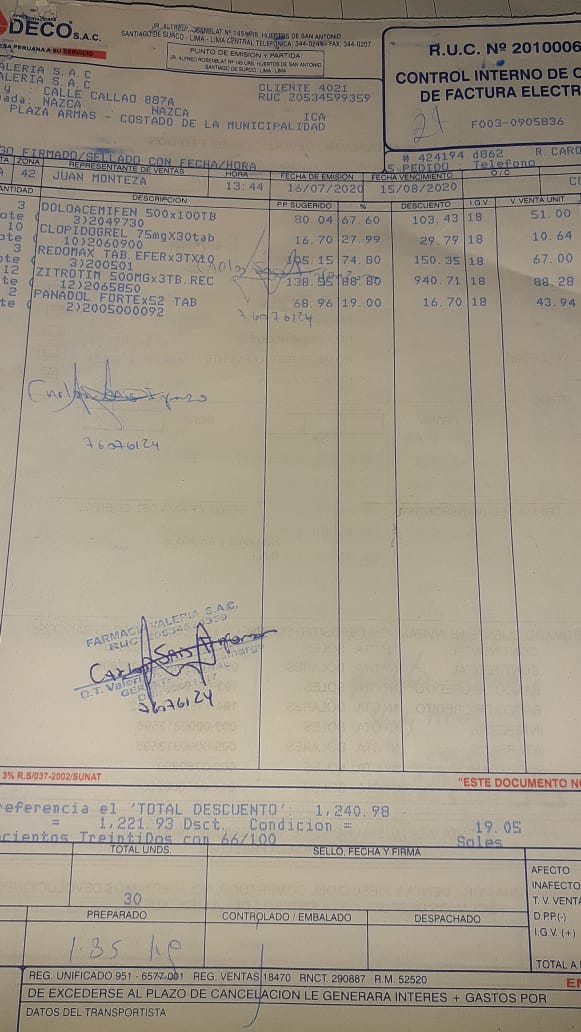 DECO S.A.C.
JR. ALFREDO ROSENBLAT Nº 145 URB. HUERTOS DE SAN ANTONIO
SANTIAGO DE SURCO - LIMA - LIMA CENTRAL TELEFÓNICA: 344-0240 FAX: 344-0207
ESA PERUANA A SU SERVICIO
PUNTO DE EMISIÓN Y PARTIDA
JR. ALFREDO ROSENBLAT Nº 145 URB. HUERTOS DE SAN ANTONIO
SANTIAGO DE SURCO - LIMA - LIMA
R.U.C. Nº 2010006
CONTROL INTERNO DE
DE FACTURA ELECTR
24
F003-0905836
ALERIA S.A.C
ALERIA S.A.C
CLIENTE 4021
RUC 20534599359
y : CALLE CALLAO 887A
NAZCA NAZCA ICA
PLAZA ARMAS - COSTADO DE LA MUNICIPALIDAD
GO FIRMADO/SELLADO CON FECHA/HORA
# 424194 d862 R. CARO
S.PEDIDO Telefono
ZONA REPRESENTANTE DE VENTAS HORA FECHA DE EMISION FECHA VENCIMIENTO O/C
42 JUAN MONTEZA 13:44 16/07/2020 15/08/2020
ANTIDAD DESCRIPCION P.P. SUGERIDO % DESCUENTO I.G.V. V. VENTA UNIT
3 DOLOACEMIFEN 500x100TB 80.04 67.60 103.43 18 51.00
ote ( 3)2049730
10 CLOPIDOGREL 75mgX30tab 16.70 27.99 29.79 18 10.64
ote ( 10)2060900
3 REDOMAX TAB.EFERx3TX10 105.15 74.80 150.35 18 67.00
ote ( 3)200501
12 ZITROTIM 500MGx3TB.REC 138.55 88.80 940.71 18 88.28
ote ( 12)2065850
2 PANADOL FORTEx52 TAB 68.96 19.00 16.70 18 43.94
te ( 2)2005000092
76076124
76076124
FARMACIA VALERIA S.A.C.
RUC 20534599359
76076124
3% R.S/037-2002/SUNAT
"ESTE DOCUMENTO NO
referencia el 'TOTAL DESCUENTO': 1,240.98
= 1,221.93 Dsct. Condicion = 19.05
cientos TreintiDos con 66/100 Soles
TOTAL UNDS. SELLO, FECHA Y FIRMA
30
AFECTO
INAFECTO
T. V. VENTA
D.P.P.(-)
I.G.V. (+)
TOTAL A
PREPARADO CONTROLADO / EMBALADO DESPACHADO
1.85 kg
REG. UNIFICADO 951 - 6577-001 REG. VENTAS 18470 RNCT. 290887 R.M. 52520
EN
DE EXCEDERSE AL PLAZO DE CANCELACION LE GENERARA INTERES + GASTOS POR
DATOS DEL TRANSPORTISTA